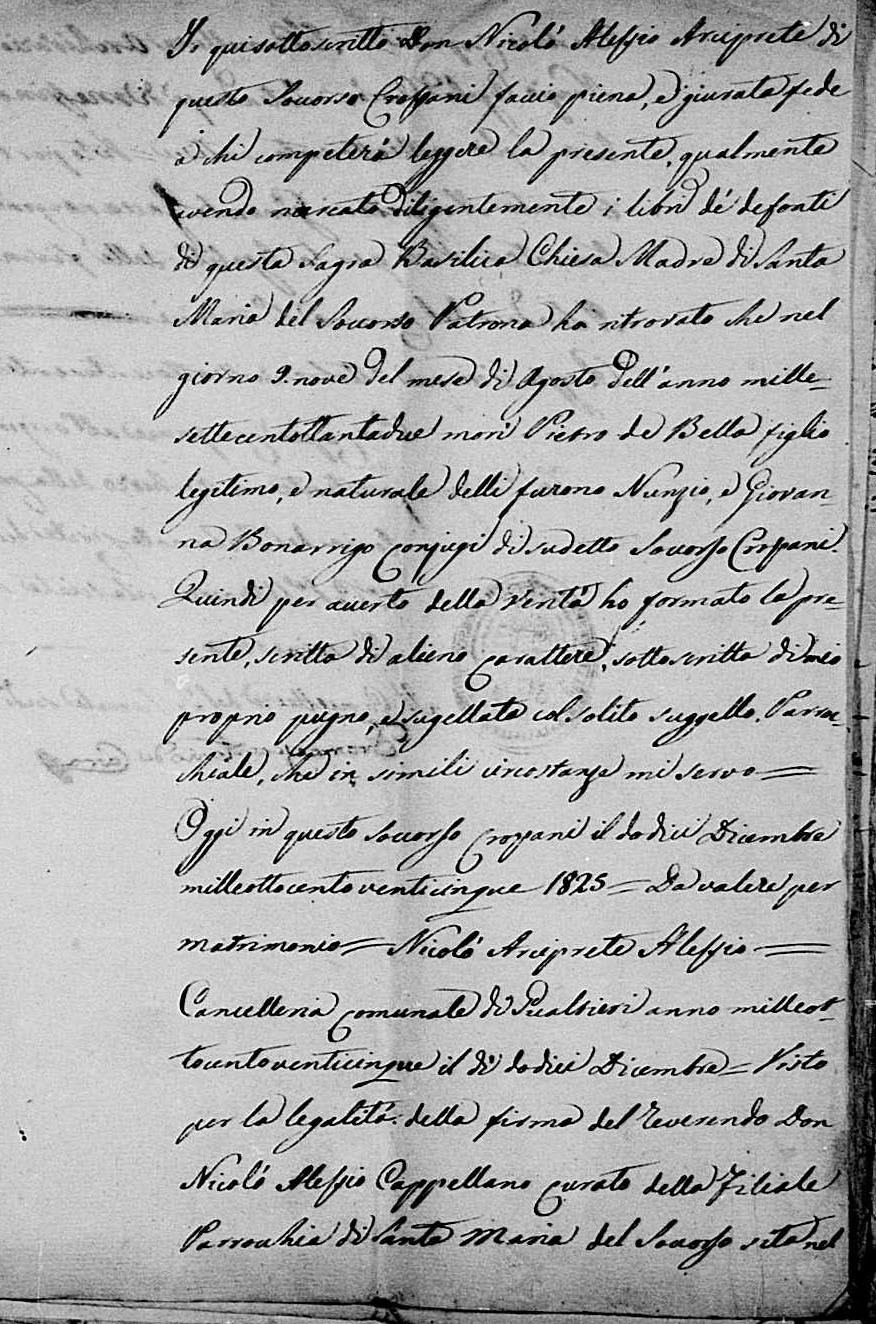 Io qui sotto scritto Don Nicolò Alessio Arciprete di
questo Soccorso Croppani faccio piena, e giurata fede
a chi competerà leggere la presente, qualmente
avendo ricercato diligentemente i libri de' defonti
di questa Sagra Basilica Chiesa Madre di Santa
Maria del Soccorso Patrona ho ritrovato che nel
giorno 9. nove del mese di Agosto dell'anno mille=
settecentottantadue morì Pietro de Bella figlio
legitimo, e naturale delli furono Nunzio, e Giovan=
na Bonarrigo conjugi di sudetto Soccorso Croppani.
Quindi per accerto della verità ho formato la pre=
sente, scritta di alieno carattere, sottoscritta di mio
proprio pugno, e sugellata col solito suggello Parroc=
chiale, che in simili circostanze mi servo =
Oggi in questo Soccorso Croppani il dodici Dicembre
milleottocentoventicinque 1825 = Da valere per
matrimonio = Nicolò Arciprete Alessio =
Cancelleria comunale di Gualtieri anno milleot=
tocentoventicinque il dì dodici Dicembre = Visto
per la legalità della firma del Reverendo Don
Nicolò Alessio Cappellano curato della Filiale
Parrochia di Santa Maria del Soccorso sita nel